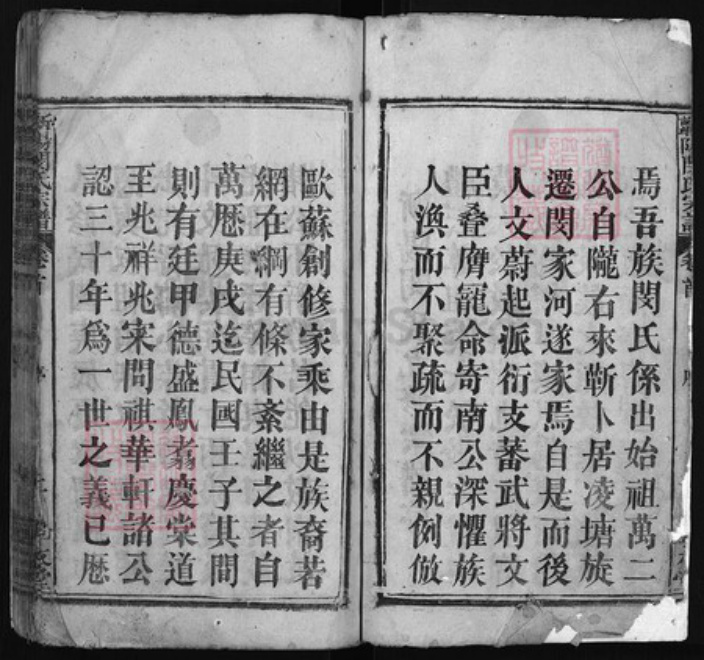 焉吾族閔氏係出始祖萬二
公自隴右來蘄卜居凌塘旋
遷閔家河遂家焉自是而後
人文蔚起派衍支蕃武將文
臣叠膺寵命寄南公深懼族
人渙而不聚疏而不親例倣
歐蘇創修家乘由是族裔若
網在綱有條不紊繼之者自
萬厯庚戌迄民國壬子其間
則有廷甲德盛鳳翥慶棠道
至兆祥兆寀問祺華軒諸公
認三十年為一世之義已厯